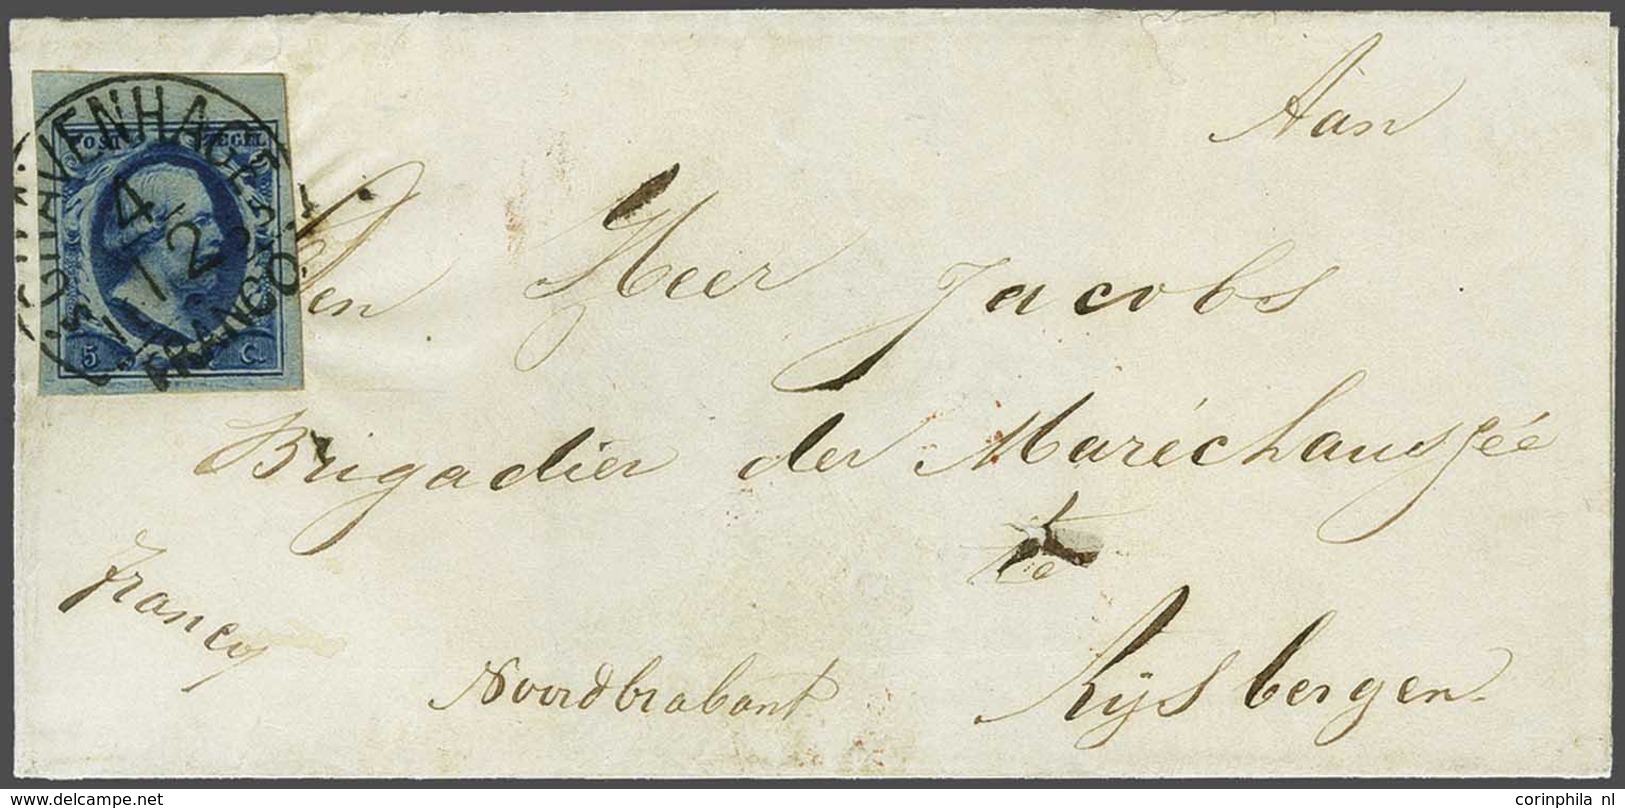 Aan
Den Heer Jacobs
Brigadier der Maréchaussée
te
Rijsbergen
franco
Noordbrabant
POST ZEGEL
'S GRAVENHAGE
4
12
FRANCO
5 C.
corinphila nl